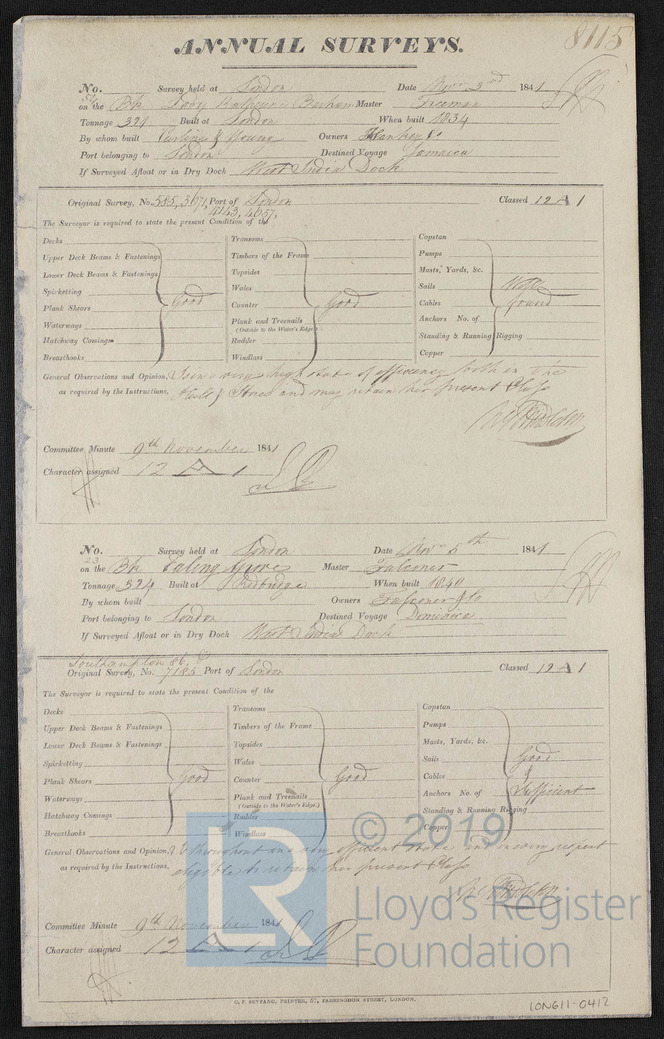 ANNUAL SURVEYS. 8115
No. 56 Survey held at London Date Nov 3rd 1841
on the Bk Lady Master Freeman
Tonnage 321 Built at London When built 1834
By whom built & Young Owners Hankey & Co
Port belonging to London Destined Voyage Jamaica
If Surveyed Afloat or in Dry Dock West India Dock
Original Survey, No. 585, 3671, Port of London Classed 12 A 1
4143, 4657,
The Surveyor is required to state the present Condition of the
Decks
Upper Deck Beams & Fastenings
Lower Deck Beams & Fastenings
Spirketting
Plank Shears
Waterways
Hatchway Comings
Breasthooks
Good
Transoms
Timbers of the Frame
Topsides
Wales
Counter
Plank and Treenails
(Outside to the Water's Edge)
Rudder
Windlass
Good
Capstan
Pumps
Masts, Yards, &c.
Sails
Cables
Anchors No. of
Standing & Running Rigging
Copper
Well
found
General Observations and Opinion, Is in a very high state of efficiency both in the
as required by the Instructions, Hull & Stores and may retain her present Class
Committee Minute 9th November 1841
Character assigned 12 A 1
No. 23 Survey held at London Date Nov 5th 1841
on the Bk Ealing Grove Master Falconer
Tonnage 324 Built at Redbridge When built 1840
By whom built Owners Falconer & Co
Port belonging to London Destined Voyage Dominica
If Surveyed Afloat or in Dry Dock West India Dock
Southampton 86, &
Original Survey, No. 7185 Port of London Classed 12 A 1
The Surveyor is required to state the present Condition of the
Decks
Upper Deck Beams & Fastenings
Lower Deck Beams & Fastenings
Spirketting
Plank Shears
Waterways
Hatchway Comings
Breasthooks
Good
Transoms
Timbers of the Frame
Topsides
Wales
Counter
Plank and Treenails
(Outside to the Water's Edge)
Rudder
Windlass
Good
Capstan
Pumps
Masts, Yards, &c.
Sails
Cables
Anchors No. of
Standing & Running Rigging
Copper
Good
&
Sufficient
General Observations and Opinion, Is throughout in a very efficient state and in every respect
as required by the Instructions, eligible to retain her present Class
Committee Minute 9th November 1841
Character assigned 12 A 1
C. F. SEYFANG, PRINTER, 57, FARRINGDON STREET, LONDON.
LON611-0412
LR
© 2019
Lloyd's Register
Foundation